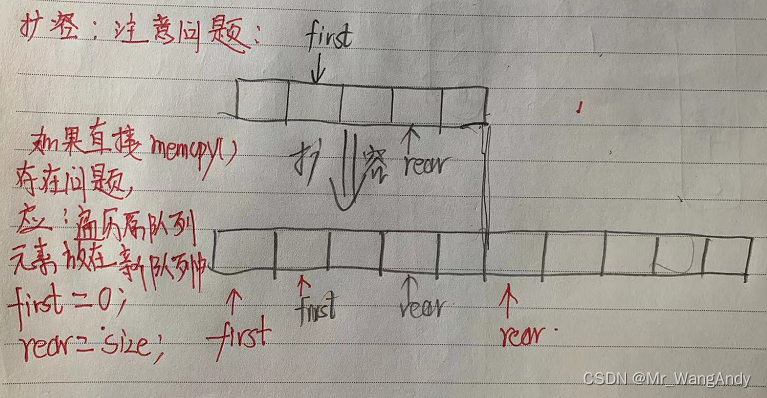 扩容：注意问题：
first
如果直接memcpy()
存在问题，
扩 容
rear
应：遍历原队列
元素放在新队列中
first = 0;
rear = size;
first
first
rear
rear
CSDN @Mr_WangAndy